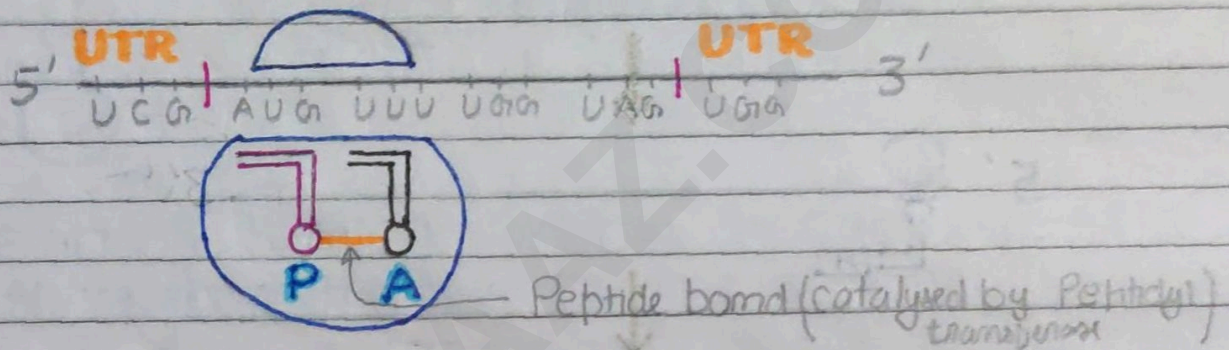 UTR UTR
5' 3'
UCG AUG UUU UGG UAG UGG
P A
Peptide bond (catalysed by Peptidyl)
transferase